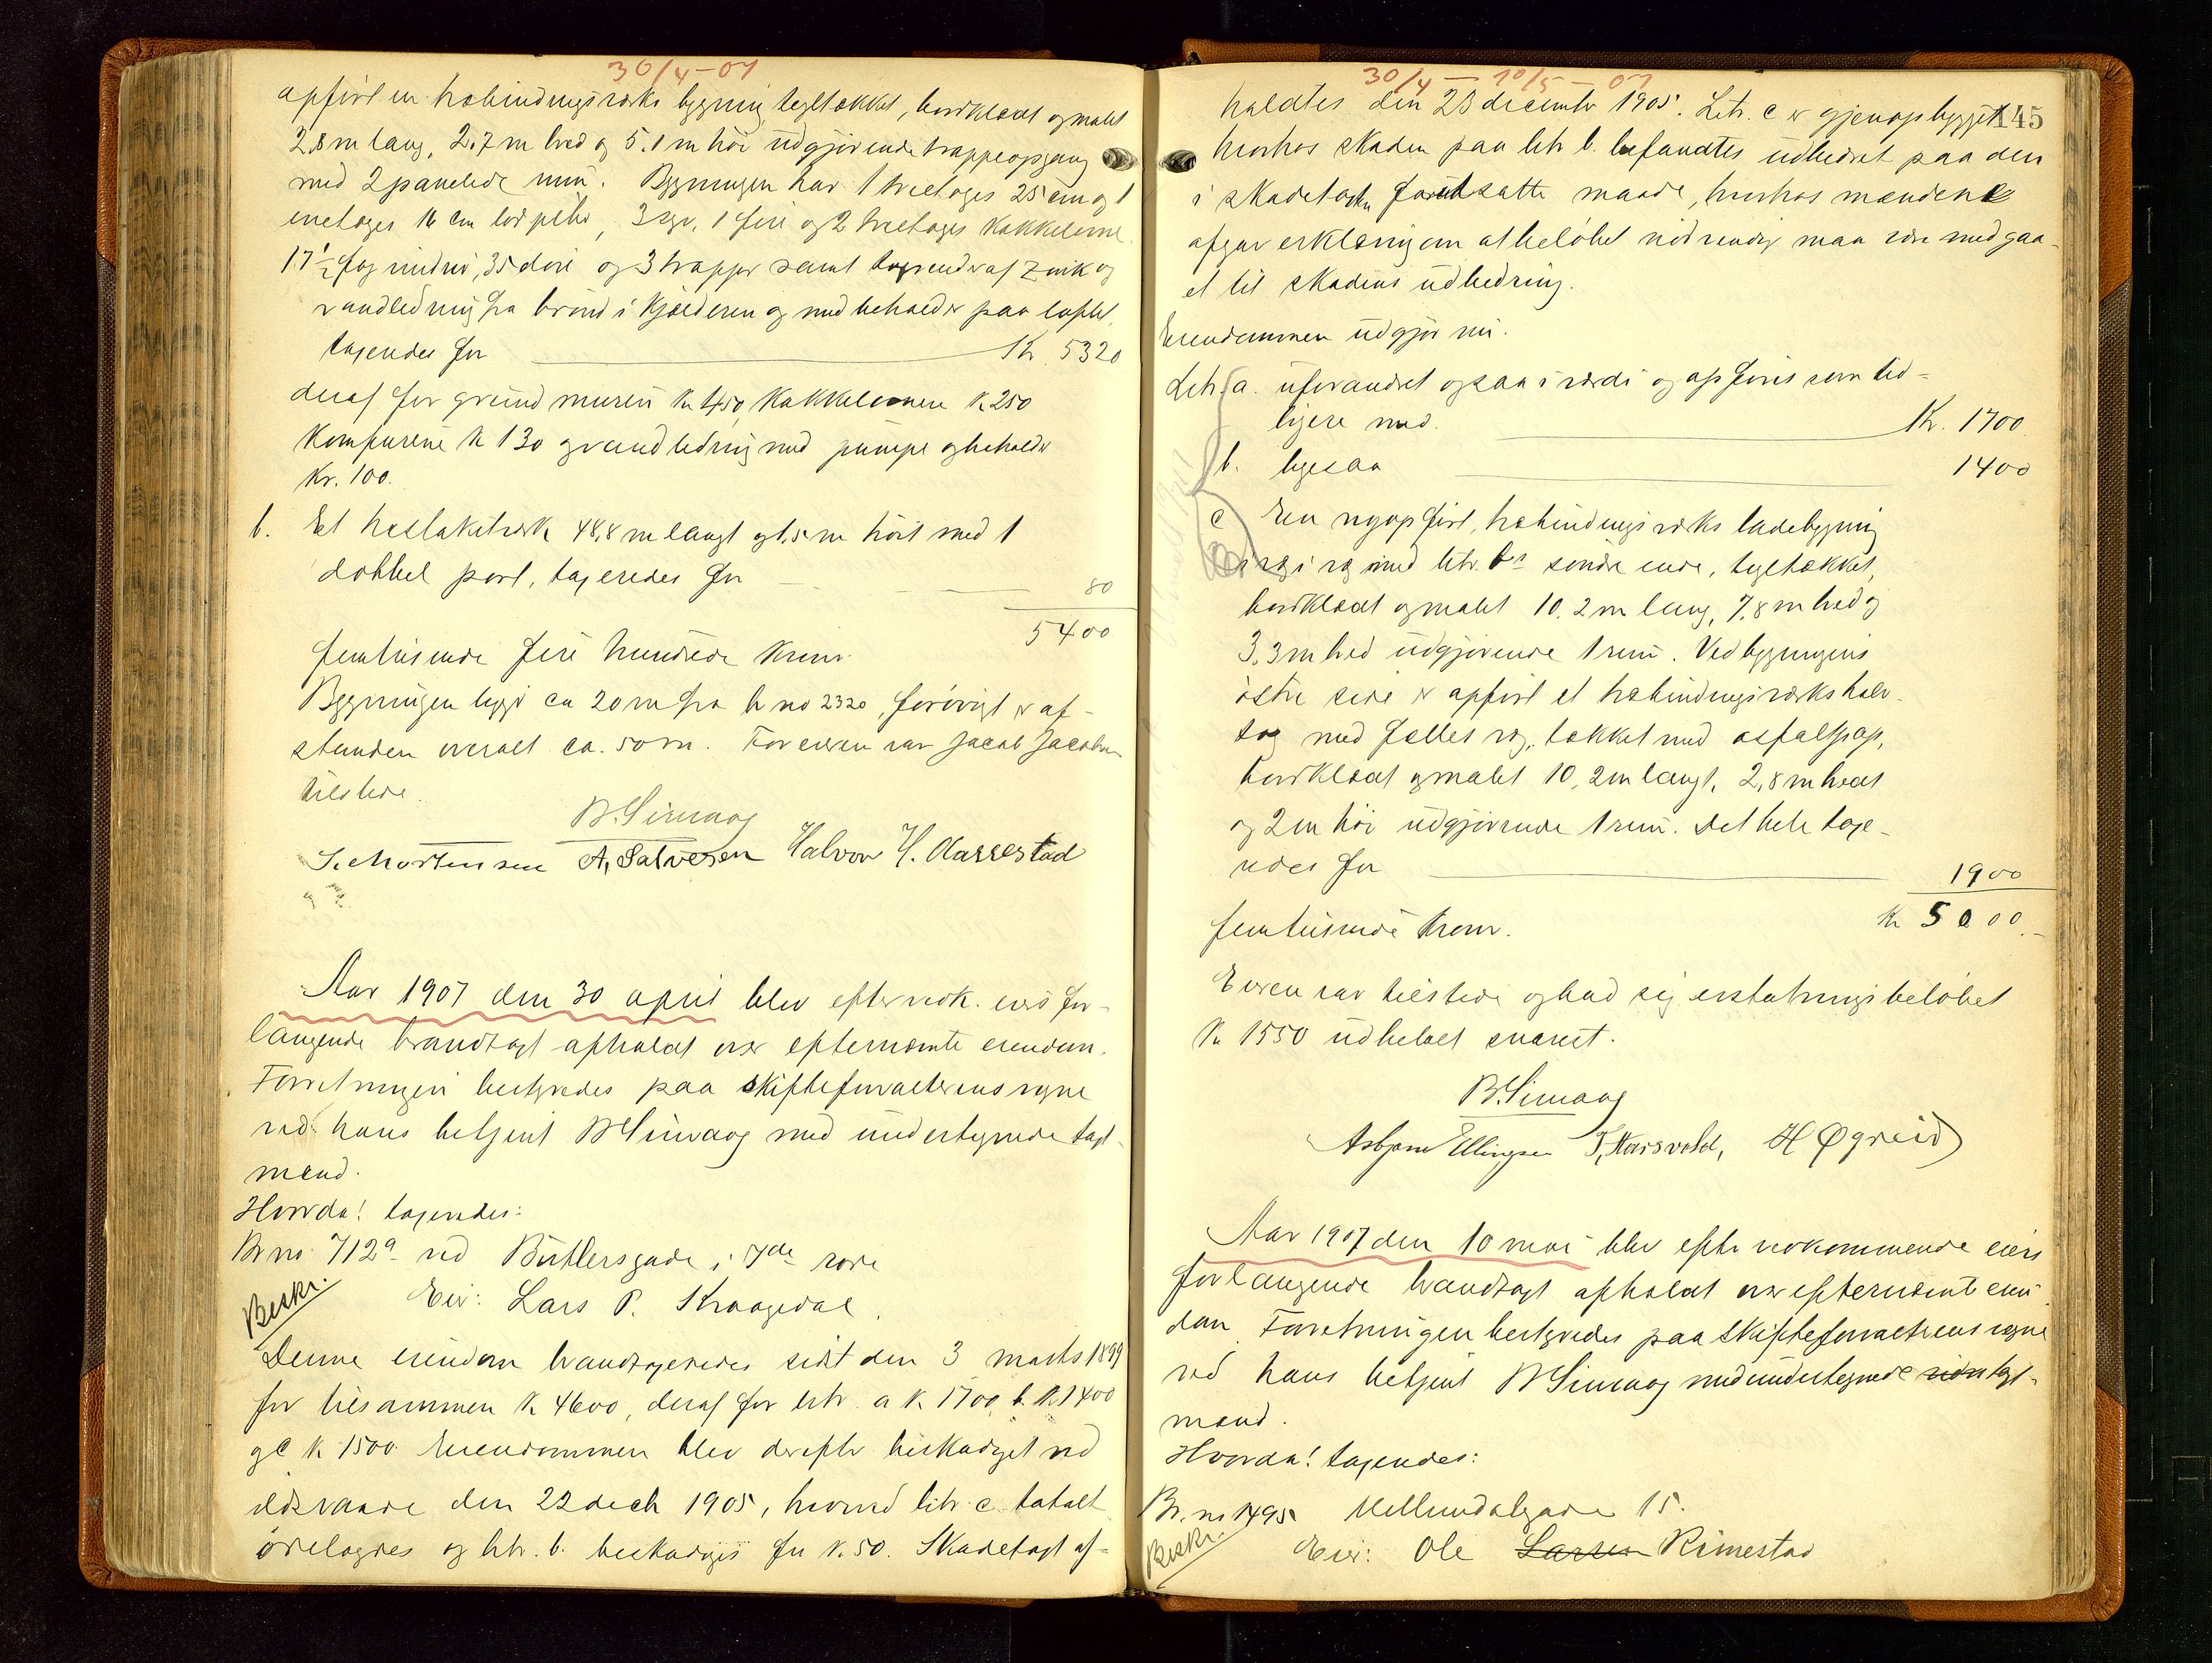 30/4-07
opført en træbindingsverks bygning tegltækket, bordklædt og malet
2,8 m lang, 2,7 m bred og 5,1 m høi udgjørende trappeopgang
med 2 panelede rum. Bygningen har 1 treetages 25 cm og 1
enetages 16 cm lodpibe, 3 kgr, 1 fire og 2 treetages kakkelovne
17½ fag vinduer, 35 døre og 3 trapper samt tagrender af zink og
vandledning fra brønd i kjælderen og med beholder paa loftet,
taxeredes for Kr. 5320
deraf for grundmuren Kr 450 kakkelovnene Kr 250
komfurene Kr 130 og vandledning med pumpe og beholder
Kr. 100.
b. Et træstakitverk 48,8 m langt og 1,5 m høit med 1
dobbel port, taxeredes for 80
5400
femtusinde fire hundrede kroner
Bygningen ligger ca 20 m fra br no 2320, forøvrigt er af-
standen overalt ca. 50 m. For eieren var Jacob Jacobsen
tilstede.
B. Simvaag
S. Mortensen A. Salvesen Halvor H. Aarrestad
Aar 1907 den 30 april blev efter vedk. eiers for-
langende brandtaxt afholdt over efternævnte eiendom.
Forretningen bestyredes paa skifteforvalterens vegne
ved hans betjent B Simvaag med undertegnede taxt-
mænd.
Hvorda! taxeredes:
Br no 712a ved Butlersgade i 7de rode
Beskr.
Eier: Lars P. Kraagedal.
Denne eiendom brandtaxeredes sidst den 3 marts 1899
for tilsammen Kr 4600, deraf for litr. a Kr 1700, b. Kr 1400
og c Kr 1500. Eiendommen blev derefter beskadiget ved
ildsvaade den 22 decbr 1905, hvorved litr. c totalt
ødelagdes og litr. b. beskadiges for Kr. 50. Skadetaxt af-
30/4 - 10/5 - 07
145
holdtes den 23 december 1905. Litr. c er gjenopbygget
hvorhos skaden paa litr b. befandtes udbedret paa den
i skadetaxten forudsatte maade, hvorhos mændene
afgav erklæring om at beløbet nødvendig maa være medgaa-
et til skadens udbedring.
Eiendommen udgjør nu.
Litr. a. uforandret ogsaa i værdi og opføres som tid-
ligere med. Kr. 1700
b. ligesaa 1400
c En nyopført, træbindingsverks ladebygning
i væg med litr. bs søndre ende, tegltækket,
bordklædt og malet 10,2 m lang, 7,8 m bred og
3,3 m bred udgjørende 1 rum. Ved bygningens
østre side er opført et træbindingsverks halv-
tag med fælles væg, tækket med asfaltpap,
bordklædt og malet 10,2 m langt, 2,8 m bredt
og 2 m høi udgjørende 1 rum. Det hele taxe-
redes for 1900
Kr 5000.-
femtusinde kroner.
Eieren var tilstede og bad sig erstatningsbeløbet
Kr 1550 udbetalt snarest.
B. Simvaag
Asbjørn Ellingsen T. Haarsvold, H Øgreid
Aar 1907 den 10 mai blev efter vedkommende eiers
forlangende brandtaxt afholdt over efternævnte eien-
dom. Forretningen bestyredes paa skifteforvalterens vegne
ved hans betjent B Simvaag med undertegnede taxt-
mænd.
Hvorda! taxeredes:
Br. no 1495 Møllendalsgade 15.
Beskr.
Eier: Ole Larsen Rimestad